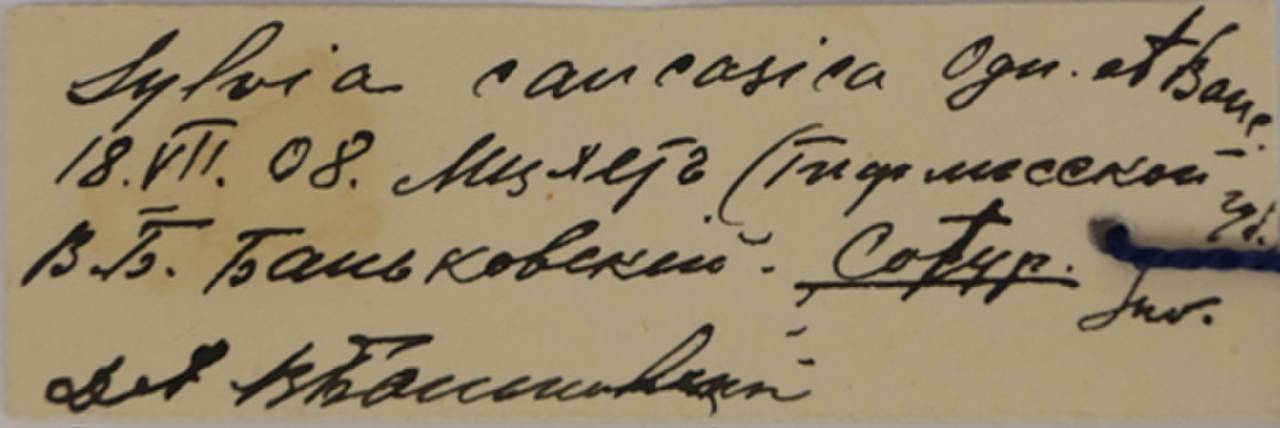 Sylvia caucasica Огн. et Банс.
18.VII.08. Мцхетъ (Тифлисской губ.
В.Б. Баньковский. Cotyp.
Juv.
Det В Баньковский